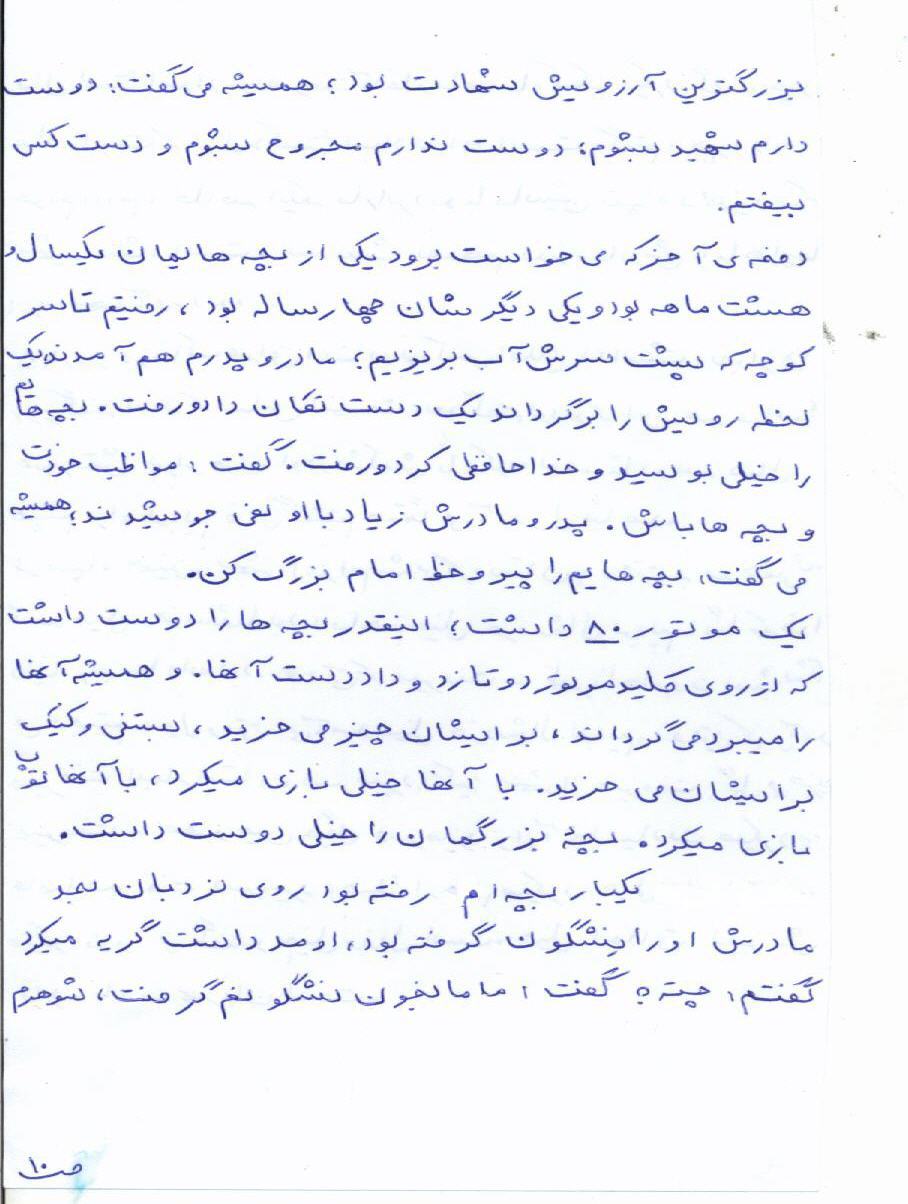 بزرگترین آرزویش شهادت بود؛ همیشه می گفت: دوست
دارم شهید بشوم؛ دوست ندارم مجروح بشوم و دست کسی
بیفتم.
دفعه ی آخر که می خواست برود یکی از بچه هایمان یکسال و
هشت ماهه بود و یکی دیگر شان چهار ساله بود، رفتیم تا سر
کوچه که پشت سرش آب بریزیم؛ مادر و پدرم هم آمدند، یک
لحظه رویش را برگرداند یک دست تکان داد و رفت. بچه هایم
را خیلی بوسید و خداحافظی کرد و رفت. گفت: مواظب خودت
و بچه ها باش. پدر و مادرش زیاد با او نمی جوشیدند؛ همیشه
می گفت، بچه هایم را پیرو خط امام بزرگ کن.
یک موتور ۸۰ داشت؛ اینقدر بچه ها را دوست داشت
که از روی کلید موتور دو تا زد و داد دست آنها. و همیشه آنها
را میبرد می گرداند، برایشان چیز می خرید، بستنی و کیک
برایشان می خرید. با آنها خیلی بازی میکرد، با آنها توپ
بازی میکرد. بچهٔ بزرگمان را خیلی دوست داشت.
یکبار بچه ام رفته بود روی نردبان بعد
مادرش او را پنشگون گرفته بود، اومد داشت گریه میکرد
گفتم: چته؟ گفت: مامانجون نشگونم گرفت، شوهرم
ص۱۰